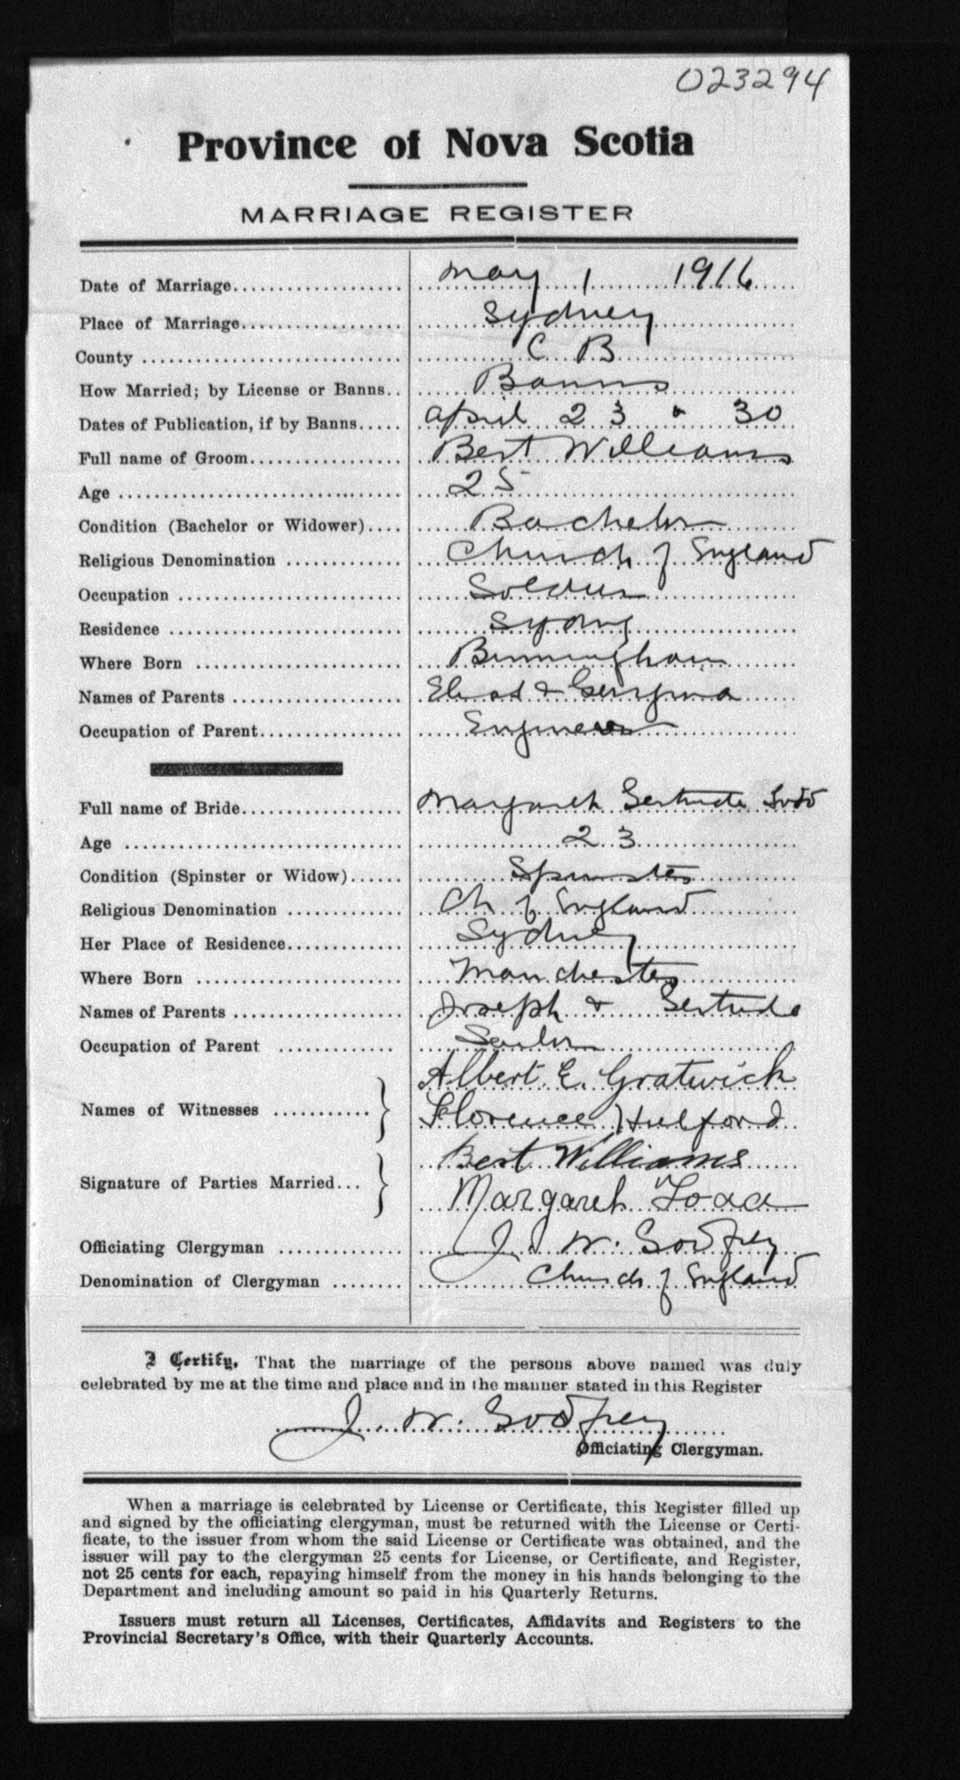 023294
Province of Nova Scotia
MARRIAGE REGISTER
Date of Marriage may 1 1916
Place of Marriage Sydney
County C B
How Married; by License or Banns Banns
Dates of Publication, if by Banns april 23 & 30
Full name of Groom Bert Williams
Age 25
Condition (Bachelor or Widower) Bachelor
Religious Denomination Church of England
Occupation Soldier
Residence Sydney
Where Born Birmingham
Names of Parents & Georgina
Occupation of Parent Engineer
Full name of Bride Margaret Gertrude Todd
Age 23
Condition (Spinster or Widow) Spinster
Religious Denomination Ch of England
Her Place of Residence Sydney
Where Born Manchester
Names of Parents Joseph & Gertrude
Occupation of Parent
Names of Witnesses Albert E. Gratwick
Florence Hulford
Signature of Parties Married Bert Williams
Margaret
Officiating Clergyman J. W. Godfrey
Denomination of Clergyman Church of England
I Certify, That the marriage of the persons above named was duly
celebrated by me at the time and place and in the manner stated in this Register
J. W. Godfrey
Officiating Clergyman.
When a marriage is celebrated by License or Certificate, this Register filled up
and signed by the officiating clergyman, must be returned with the License or Certi-
ficate, to the issuer from whom the said License or Certificate was obtained, and the
issuer will pay to the clergyman 25 cents for License, or Certificate, and Register,
not 25 cents for each, repaying himself from the money in his hands belonging to the
Department and including amount so paid in his Quarterly Returns.
Issuers must return all Licenses, Certificates, Affidavits and Registers to the
Provincial Secretary's Office, with their Quarterly Accounts.